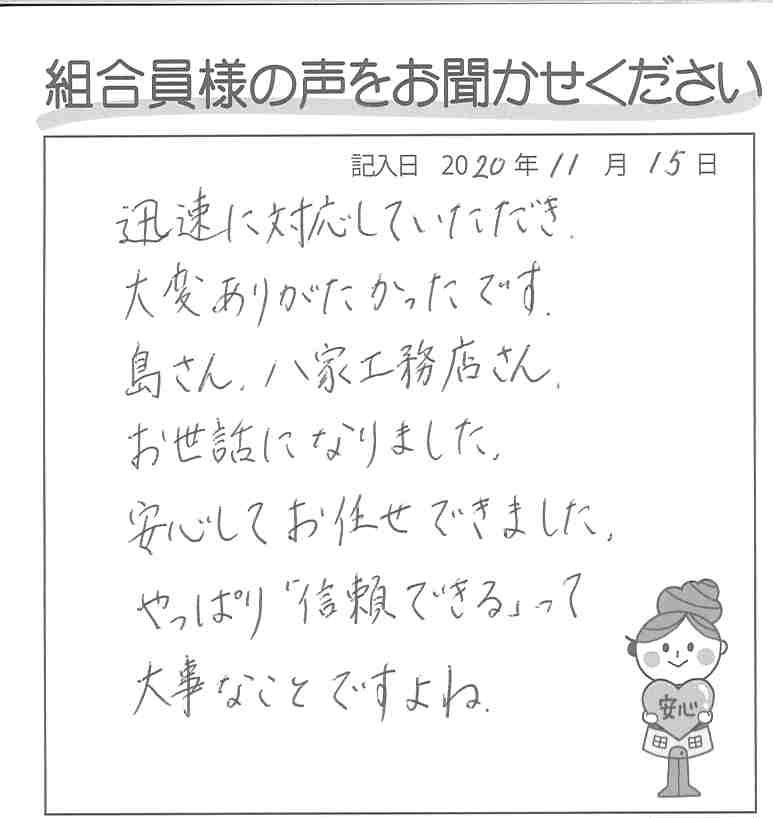 組合員様の声をお聞かせください
記入日 2020年11月15日
迅速に対応していただき、
大変ありがたかったです。
島さん、八家工務店さん、
お世話になりました。
安心してお任せできました。
やっぱり「信頼できる」って
大事なことですよね。
安心